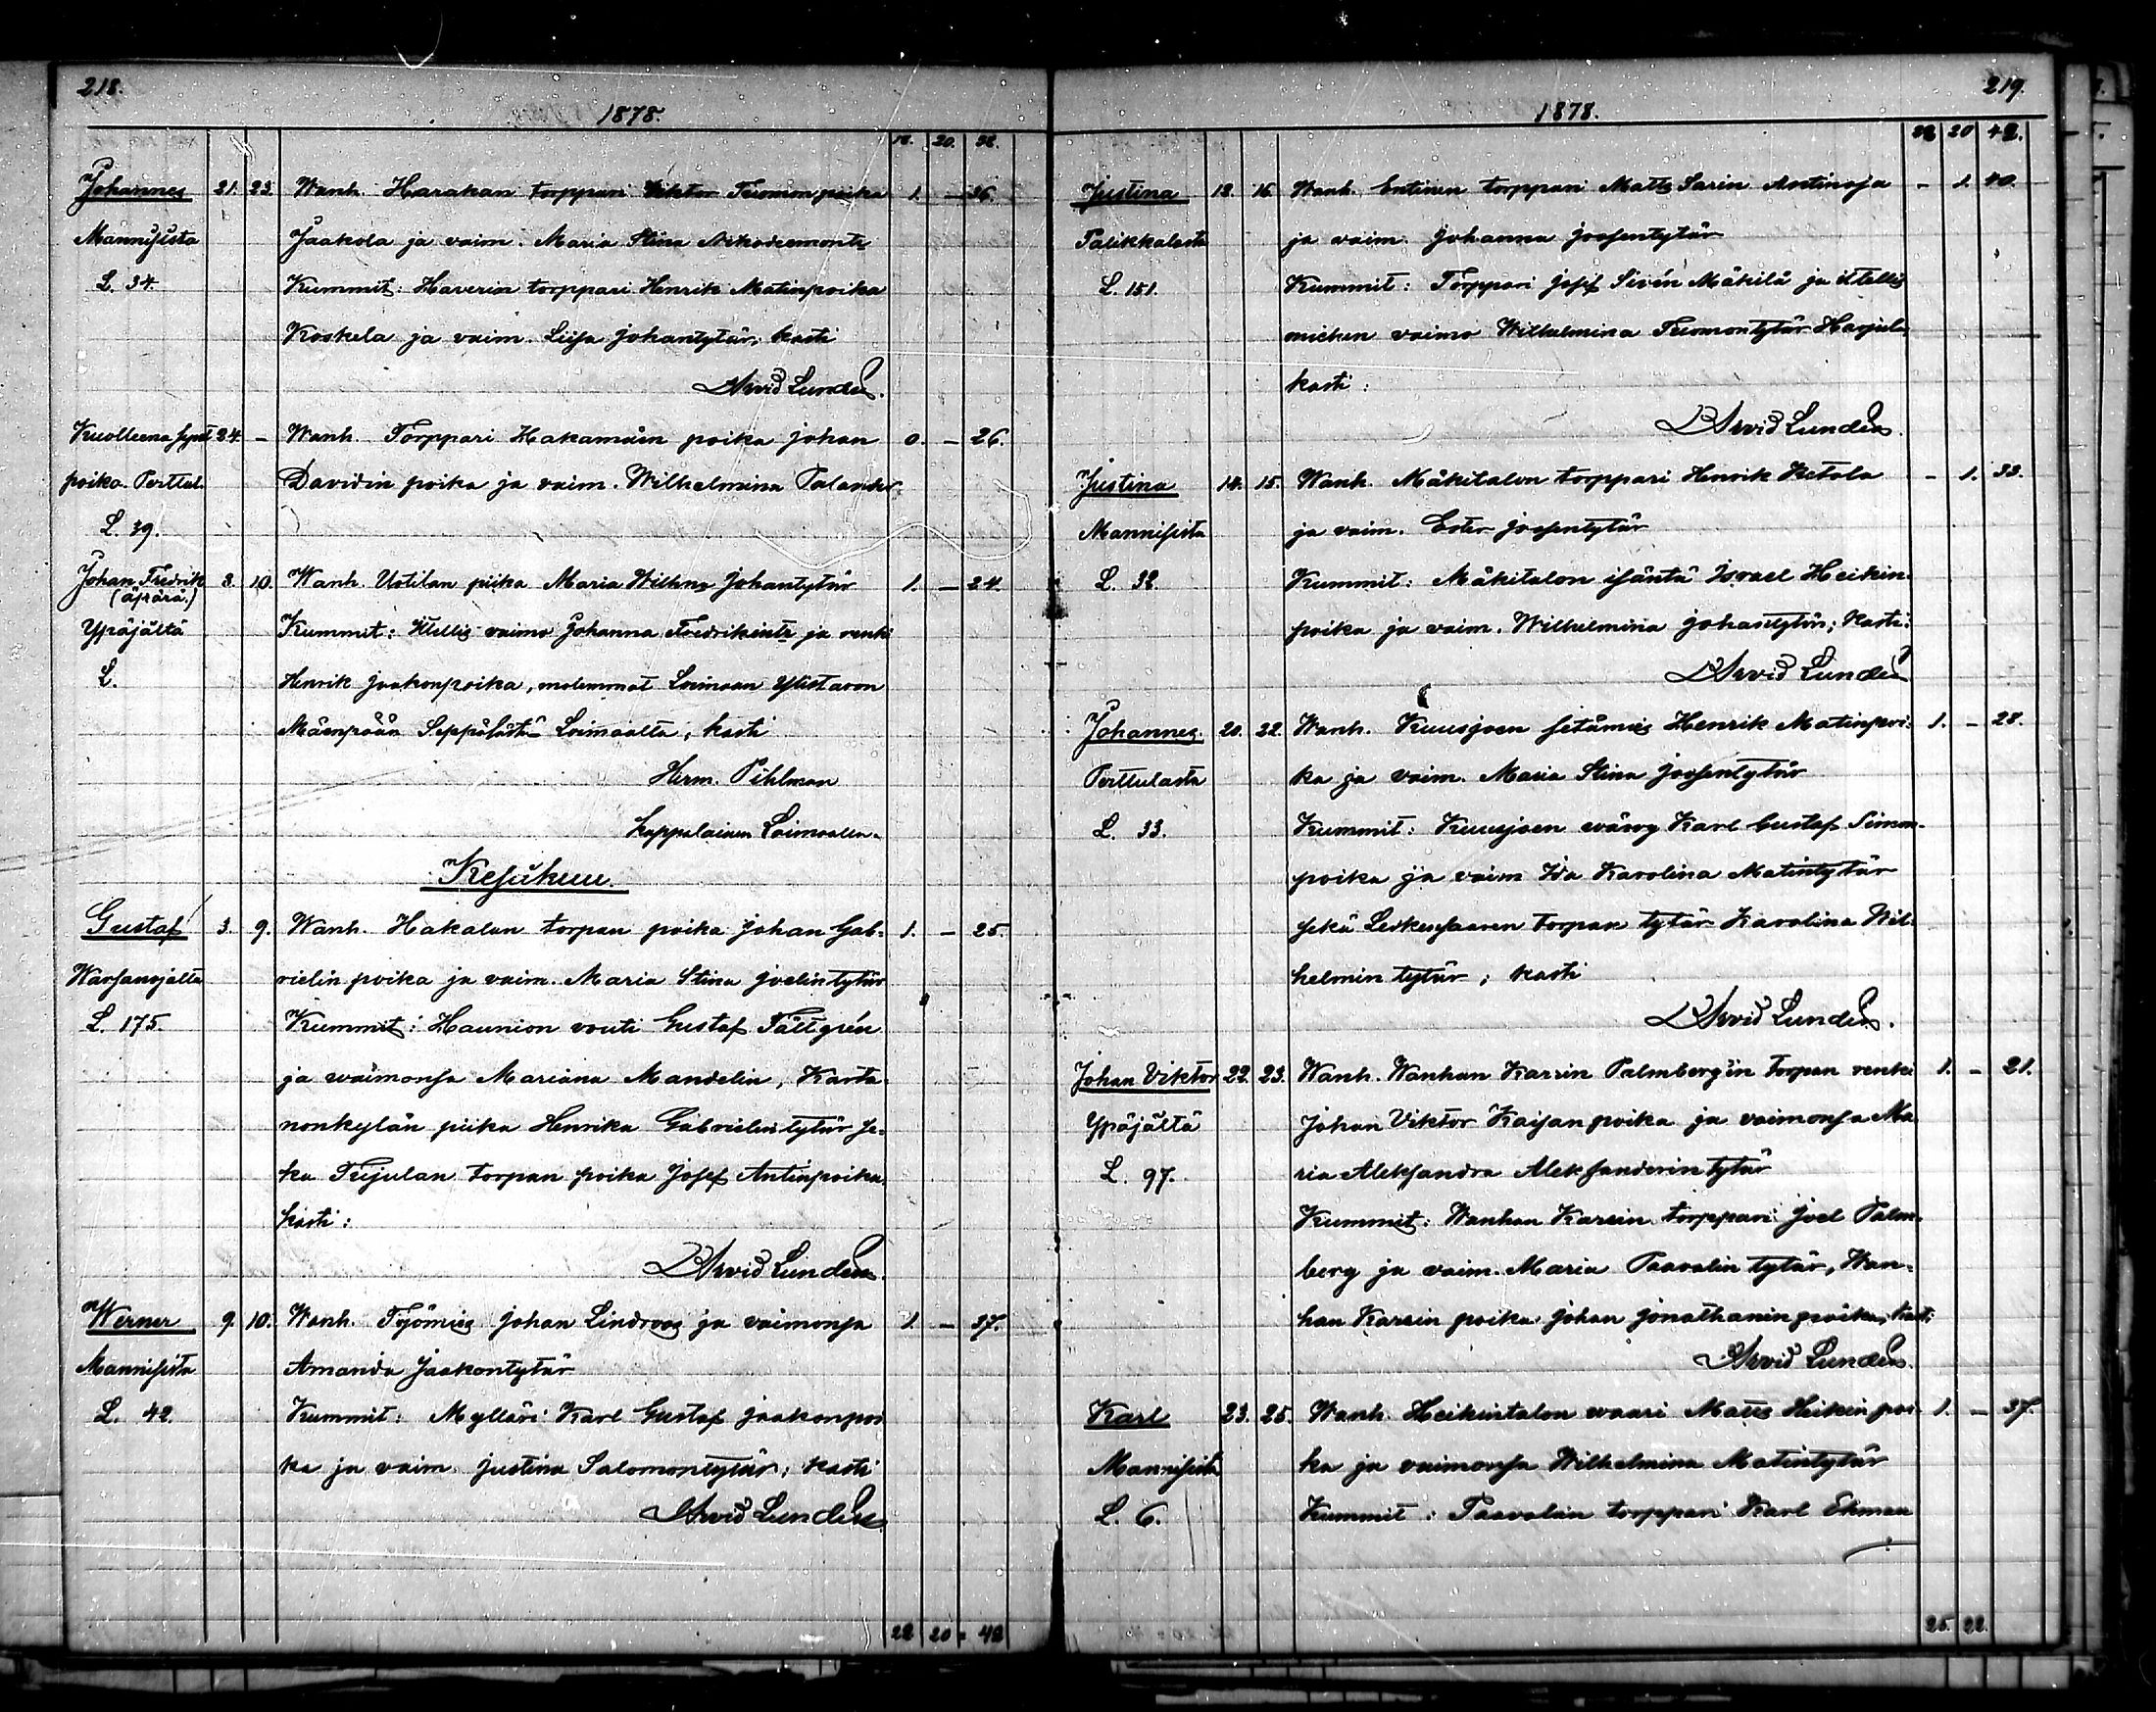 218.
1878.
18. 20. 38.
Johannes 21. 23. Wanh. Harakan torppari Viktor Tuomonpoika 1. — 36.
Mannisista Jaakola ja vaim. Maria Stina
L. 34. Kummit: Haverin torppari Henrik Matinpoika
Koskela ja vaim. Liisa Johantytär; kasti
Arvid Lundén.
Kuolleena synt. 24. — Wanh. Torppari Hakamäen poika Johan 0. — 26.
poika. Perttul. Davidin poika ja vaim. Wilhelmina Palander.
L. 39.
Johan Fredrik 3. 10. Wanh. Uotilan piika Maria Wilhna Johantytär 1. — 24.
(äpärä.)
Ypäjältä Kummit: Itsellis vaimo Johanna Fredrikintr ja renki
L. Henrik Jaakonpoika, molemmat Loimaan Ylistaron
Mäenpään Seppälästä Loimaalta; kasti
Herm. Pihlman
kappalainen Loimaalla.
Kesäkuu.
Gustaf 3. 9. Wanh. Hakalan torpan poika Johan Gab- 1. — 25.
Warsanojalta rielin poika ja vaim. Maria Stina Joelintytär
L. 175. Kummit: Haunion vouti Gustaf Tällgrén
ja vaimonsa Mariana Mandelin, Karta-
nonkylän piika Henrika Gabrielintytär se-
kä Teijulan torpan poika Josef Antinpoika.
kasti:
Arvid Lundén.
Werner 9. 10. Wanh. Työmies Johan Lindroos ja vaimonsa 1. — 37.
Mannisista Amanda Jaakontytär
L. 42. Kummit: Mylläri Karl Gustaf Jaakonpoi
ka ja vaim. Justina Salomontytär; kasti
Arvid Lundén
22 20 = 42
219.
1878.
22 20 42.
Justina 13. 16. Wanh. Entinen torppari Matts Sarin Antinoja — 1. 40.
Palikkalasta ja vaim. Johanna Joosentytär
L. 151. Kummit: Torppari Josef Sivén Mäkilä ja itsellis
miehen vaimo Wilhelmina Tuomontytär Harjula,
kasti:
Arvid Lundén.
Justina 14. 15. Wanh. Mäkitalon torppari Henrik Ketola — 1. 33.
Mannisista ja vaim. Ester Joosentytär
L. 32. Kummit: Mäkitalon isäntä Israel Heikin-
poika ja vaim. Wilhelmina Johantytär; kasti:
Arvid Lundén
Johannes 20. 22. Wanh. Kuusjoen setämies Henrik Matinpoi- 1. — 28.
Perttulasta ka ja vaim. Maria Stina Joosentytär
L. 33. Kummit: Kuusjoen wävy Karl Gustaf Simon-
poika ja vaim Ida Karolina Matintytär
sekä Leikensaaren torpan tytär Karolina Wil-
helmin tytär; kasti
Arvid Lundén.
Johan Viktor 22. 23. Wanh. Wanhan Karsin Palmberg'in torpan renki 1. — 21.
Ypäjältä Johan Viktor Kaisanpoika ja vaimonsa Ma
L. 97. ria Aleksandra Aleksanderintytär
Kummit: Wanhan Karsin torppari Joel Palm-
berg ja vaim. Maria Paavalin tytär, Wan-
han Karsin poika Johan Jonathanin poika; kasti:
Arvid Lundén.
Karl 23. 25. Wanh. Heikintalon waari Matts Heikin poi- 1. — 37.
Mannisista ka ja vaimonsa Wilhelmina Matintytär
L. 6. Kummit: Paavolan torppari Karl Ekman
25. 22.